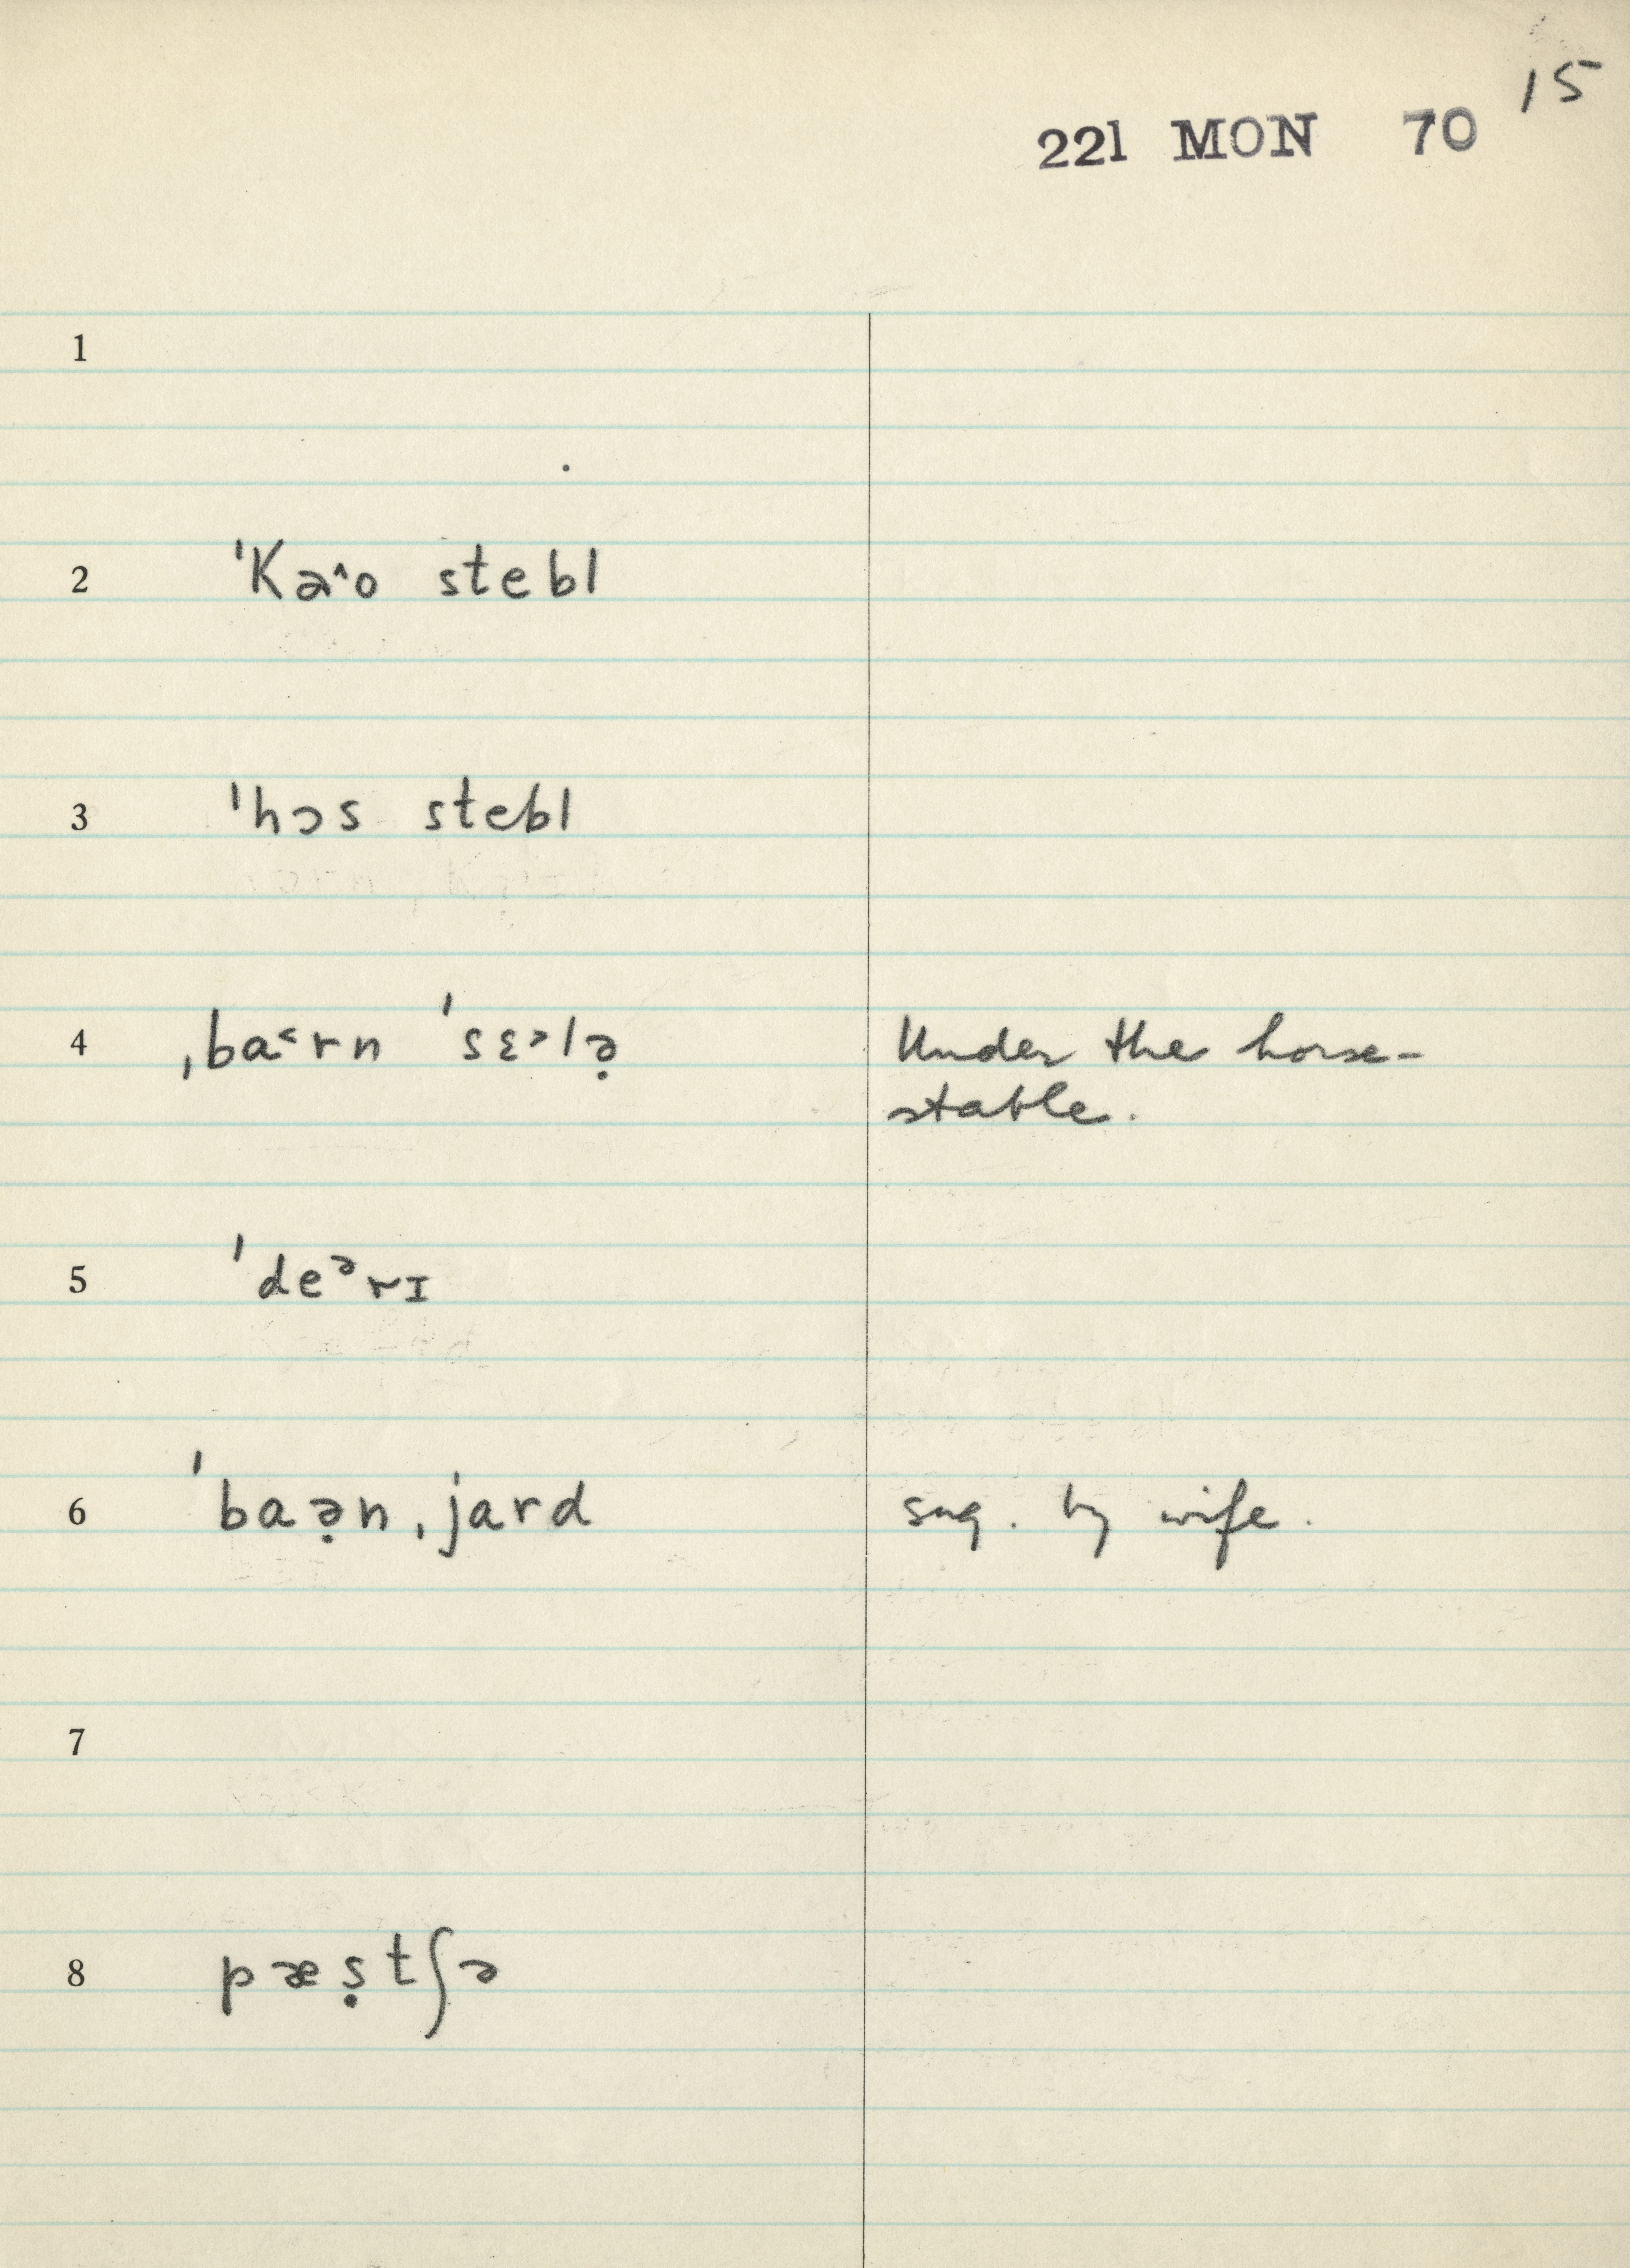 15
221 MON 70
1
2 ˈKə^o stebl
3 ˈhɔs stebl
4 ˌba˂rn ˈsɛ˃lə̣ Under the horse-
stable.
5 ˈdeᵊrɪ
6 ˈbaə̣nˌjard sug. by wife.
7
8 pæṣtʃə